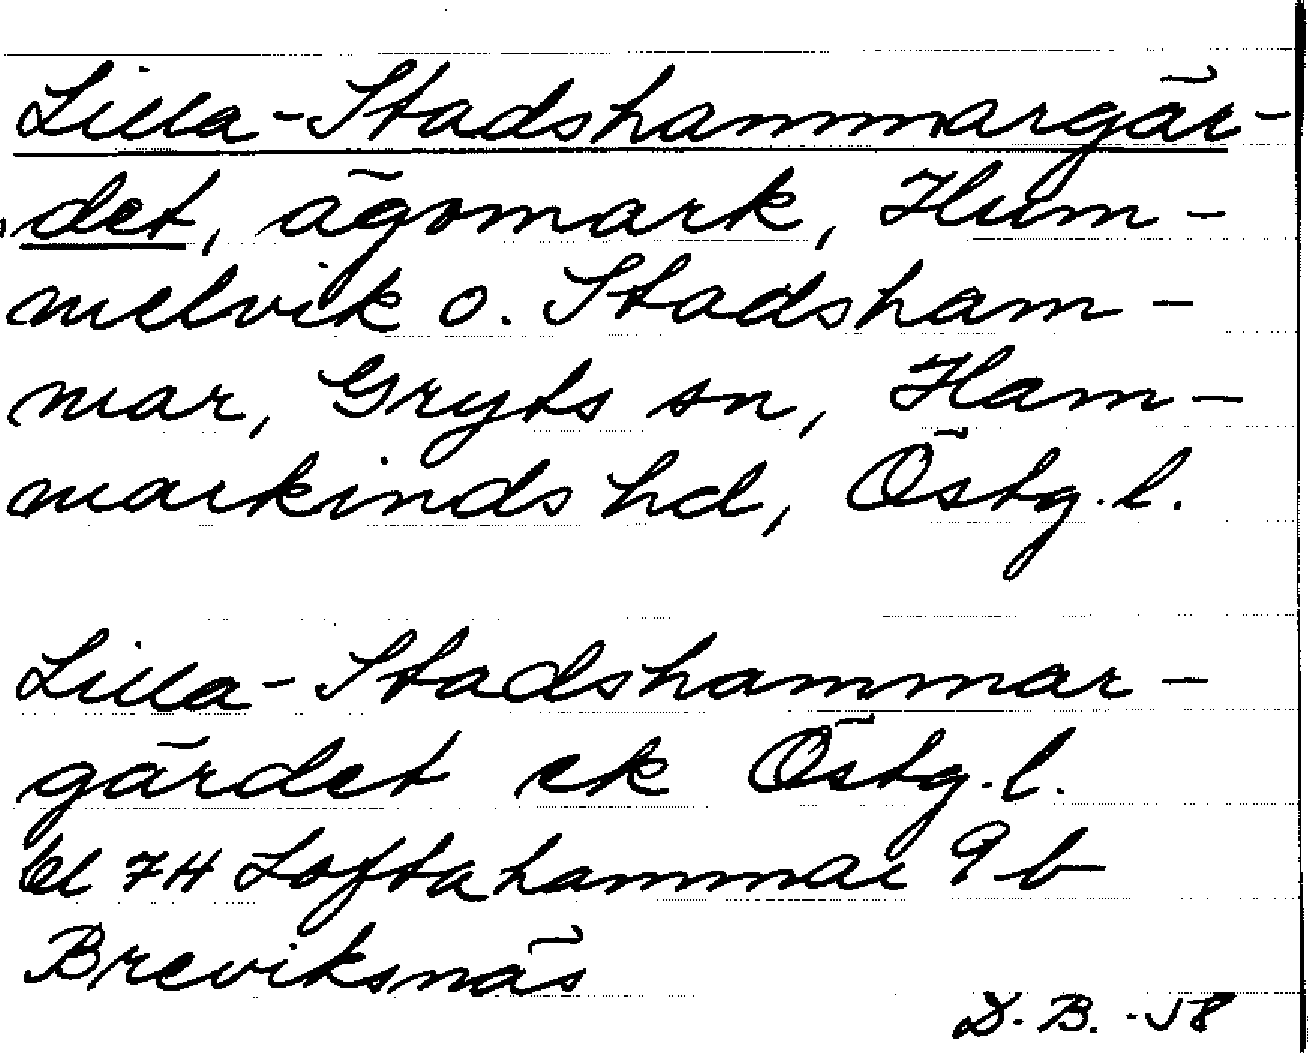 Lilla-Stadshammargär-
det, ägomark, Hum-
melvik o. Stadsham-
mar, Gryts sn, Ham-
markinds hd, Östg.l.
Lilla-Stadshammar-
gärdet ek Östg.l.
bl 7H Loftahammar 9b
Breviksnäs
D.B. -58